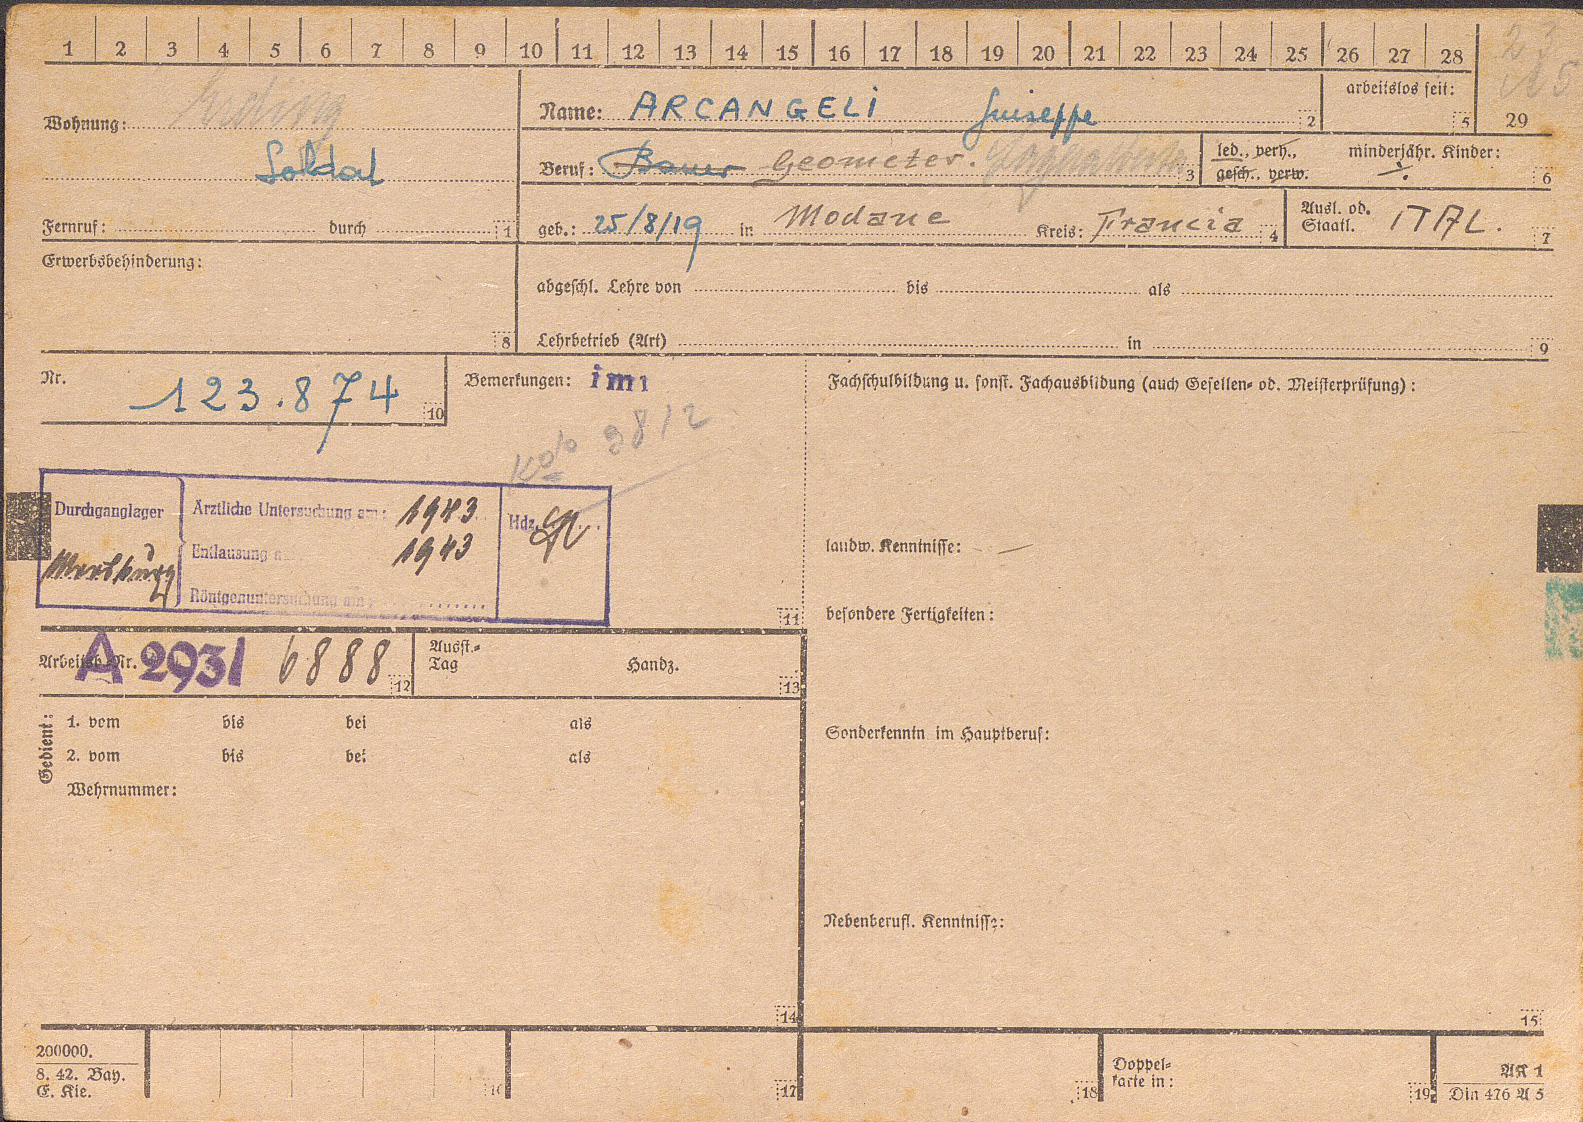 1 2 3 4 5 6 7 8 9 10 11 12 13 14 15 16 17 18 19 20 21 22 23 24 25 26 27 28
23
29
Wohnung: Erding
Soldat
Fernruf: durch 1
Name: ARCANGELI Giuseppe 2
arbeitslos seit: 5
Beruf: Bauer Geometer. 3
led., verh., gesch., verw.
minderjähr. Kinder: ÷ 6
geb.: 25/8/19 in Modane Kreis: Francia 4
Ausl. od. Staatl. ITAL. 7
Erwerbsbehinderung:
8
abgeschl. Lehre von bis als
Lehrbetrieb (Art) in 9
Nr. 123.874 10
Bemerkungen: imi
2812
Durchganglager
Ärztliche Untersuchung am: 1943
Entlausung a 1943
Röntgenuntersuchung am:
Hdz.
11
Arbeitsb.-Nr. A 293/ 6888 12
Ausst.-Tag Handz. 13
Gedient:
1. vom bis bei als
2. vom bis bei als
Wehrnummer:
14
Fachschulbildung u. sonst. Fachausbildung (auch Gesellen- od. Meisterprüfung):
landw. Kenntnisse: —
besondere Fertigkeiten:
Sonderkenntn. im Hauptberuf:
Nebenberufl. Kenntnisse:
15
200000.
8. 42. Bay.
E. Kie.
16
17
18
Doppel-
karte in:
19
AK 1
Din 476 A 5